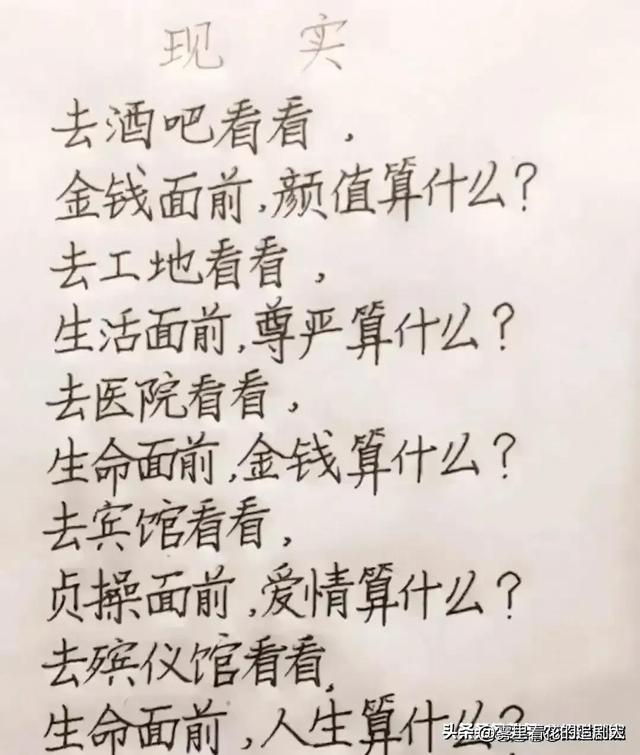 现 实
去酒吧看看，
金钱面前,颜值算什么?
去工地看看，
生活面前,尊严算什么?
去医院看看，
生命面前,金钱算什么?
去宾馆看看，
贞操面前,爱情算什么?
去殡仪馆看看,
生命面前,人生算什么?